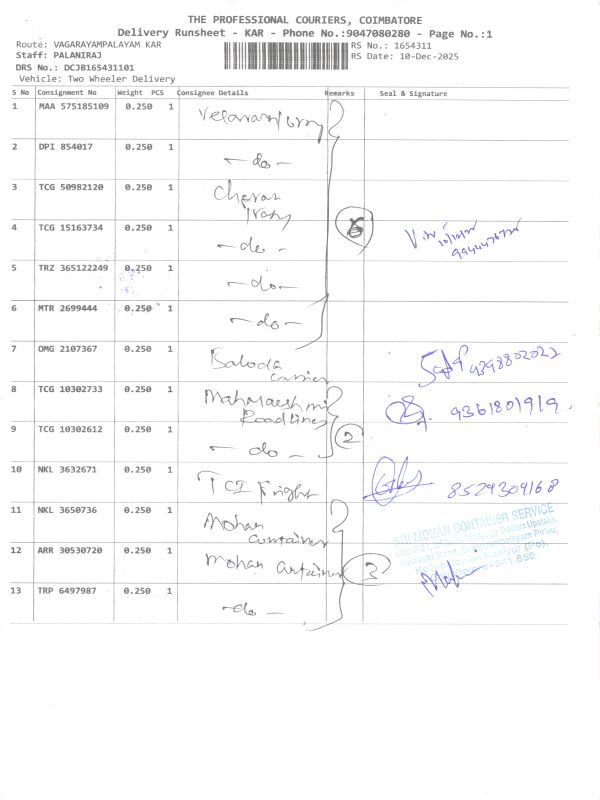 THE PROFESSIONAL COURIERS, COIMBATORE
Delivery Runsheet - KAR - Phone No.:9047080280 - Page No.:1
Route: VAGARAYAMPALAYAM KAR RS No.: 1654311
Staff: PALANIRAJ RS Date: 10-Dec-2025
DRS No.: DCJB165431101
Vehicle: Two Wheeler Delivery
S No Consignment No Weight PCS Consignee Details Remarks Seal & Signature
1 MAA 575185109 0.250 1
2 DPI 854017 0.250 1 - do -
3 TCG 50982120 0.250 1 Cheran
4 TCG 15163734 0.250 1 - do -
5 TRZ 365122249 0.250 1 - do -
6 MTR 2699444 0.250 1 - do -
7 OMG 2107367 0.250 1 Baloda
carrier
8 TCG 10302733 0.250 1 Roadlines 9361801919.
9 TCG 10302612 0.250 1 - do - 2
10 NKL 3632671 0.250 1 TCI Fright 8529309168
11 NKL 3650736 0.250 1 Mohan
Container
MOHAN CONTAINER SERVICE
12 ARR 30530720 0.250 1 Mohan Container 3
13 TRP 6497987 0.250 1 - do -